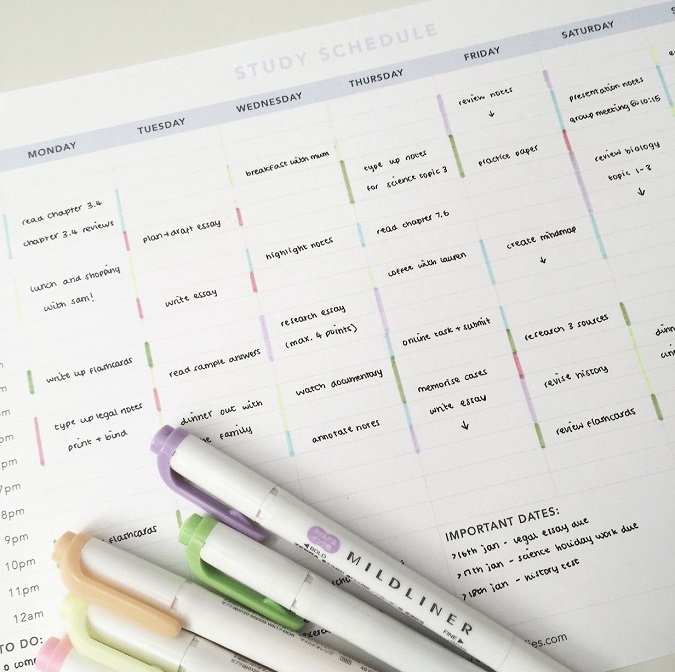 STUDY SCHEDULE
MONDAY
TUESDAY
WEDNESDAY
THURSDAY
FRIDAY
SATURDAY
read chapter 3.4
chapter 3.4 reviews
lunch and shopping
with sam!
write up flashcards
type up legal notes
print + bind
flashcards
plan + draft essay
write essay
read sample answers
dinner out with
family
breakfast with mum
highlight notes
research essay
(max. 4 points)
watch documentary
annotate notes
type up notes
for science topic 3
read chapter 7.6
coffee with lauren
online task + submit
memorise cases
write essay
↓
review notes
↓
practice paper
create mindmap
↓
research 3 sources
revise history
review flashcards
presentation notes
group meeting @ 10:15
review biology
topic 1-3
↓
pm
7pm
8pm
9pm
10pm
11pm
12am
TO DO:
IMPORTANT DATES:
> 16th jan - legal essay due
> 17th jan - science holiday work due
> 18th jan - history test
MILDLINER
BOLD
FINE